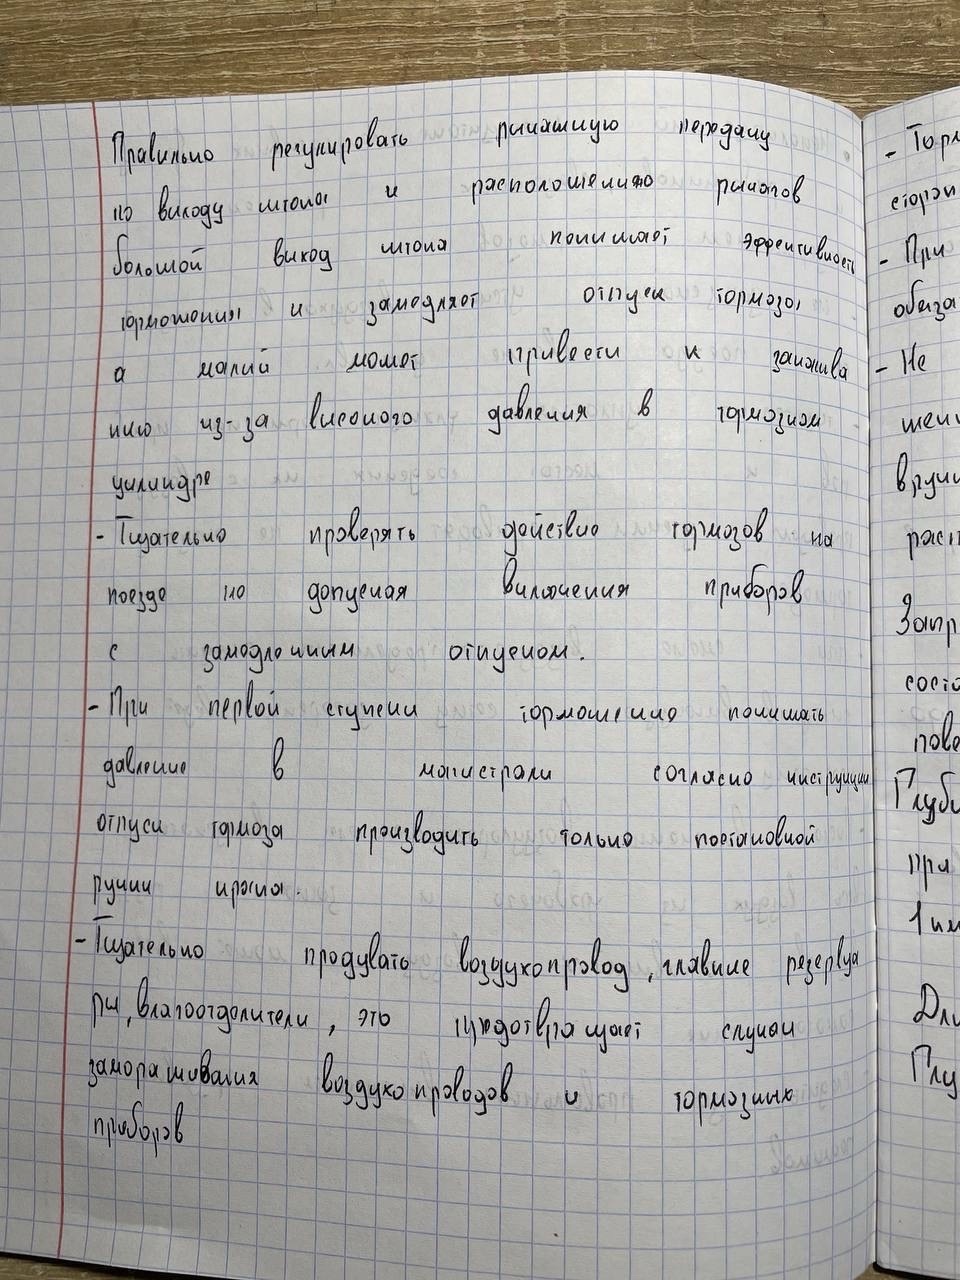 Правильно регулировать рычажную передачу
по выходу штока и расположению рычагов
большой выход штока понижает эффективность
торможения и замедляет отпуск тормоза,
а малый может привести к заклива
нию из-за высокого давления в тормозном
цилиндре
- Тщательно проверять действие тормозов на
поезде не допуская включения приборов
с замедленным отпуском.
- При первой ступени торможению понижать
давление в магистрали согласно инструкции
отпуск тормоза производить только постановкой
ручки крана.
- Тщательно продувать воздухопровод, главные резервуа
ры, влагоотделители, это предотвращает случаи
замораживания воздухопроводов и тормозных
приборов
- Торм
сторон
- При
обяза
- Не
вручн
расп
Запр
состо
пове
Глуби
при